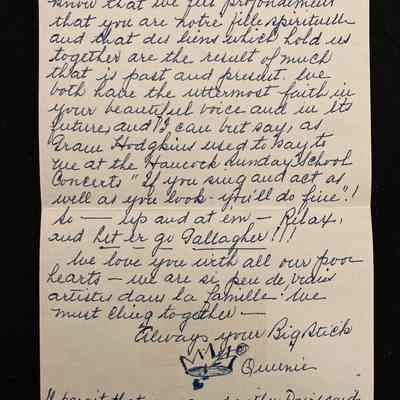 know that we feel profondement
that you are notre fille spirituelle
and that des liens which hold us
together are the result of much
that is past and present. We
both have the uttermost faith in
your beautiful voice and in its
future, and I can but say, as
Fram Hodgkins used to say to
me at the Hancock Sunday School
Concerts "If you sing and act as
well as you look - you'll do fine"!
So — up and at em — Relax,
and let er go Gallagher!!!
We love you with all our poor
hearts — we are si peu de vrais
artistes dans la famille! We
must cling together —
Always your Big Stick
Queenie